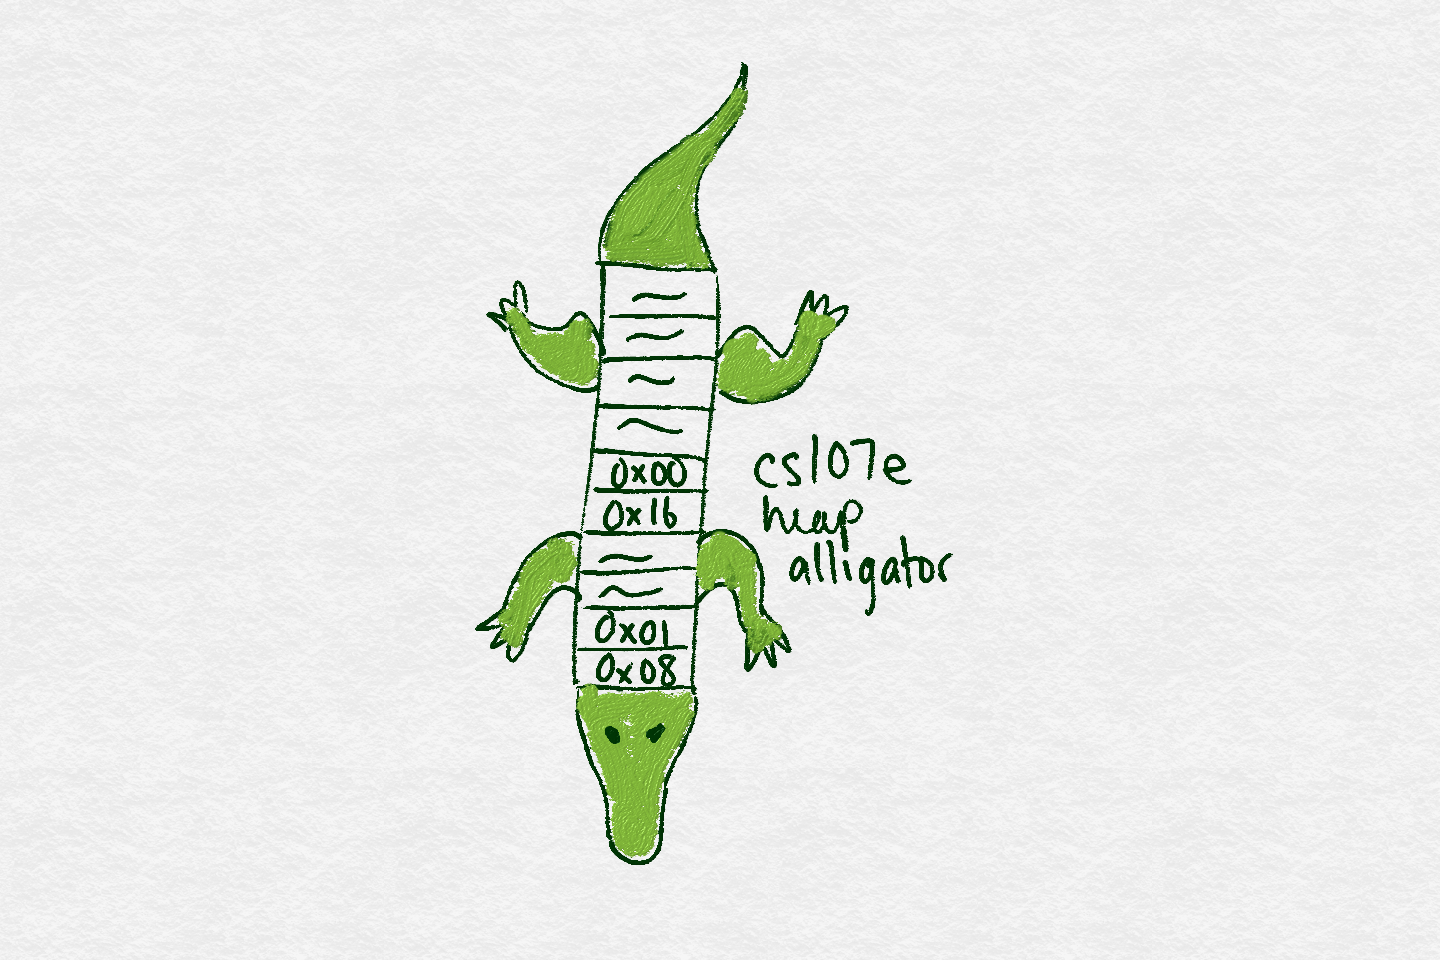 0x00
0x16
0x01
0x08
cs107e
heap
alligator